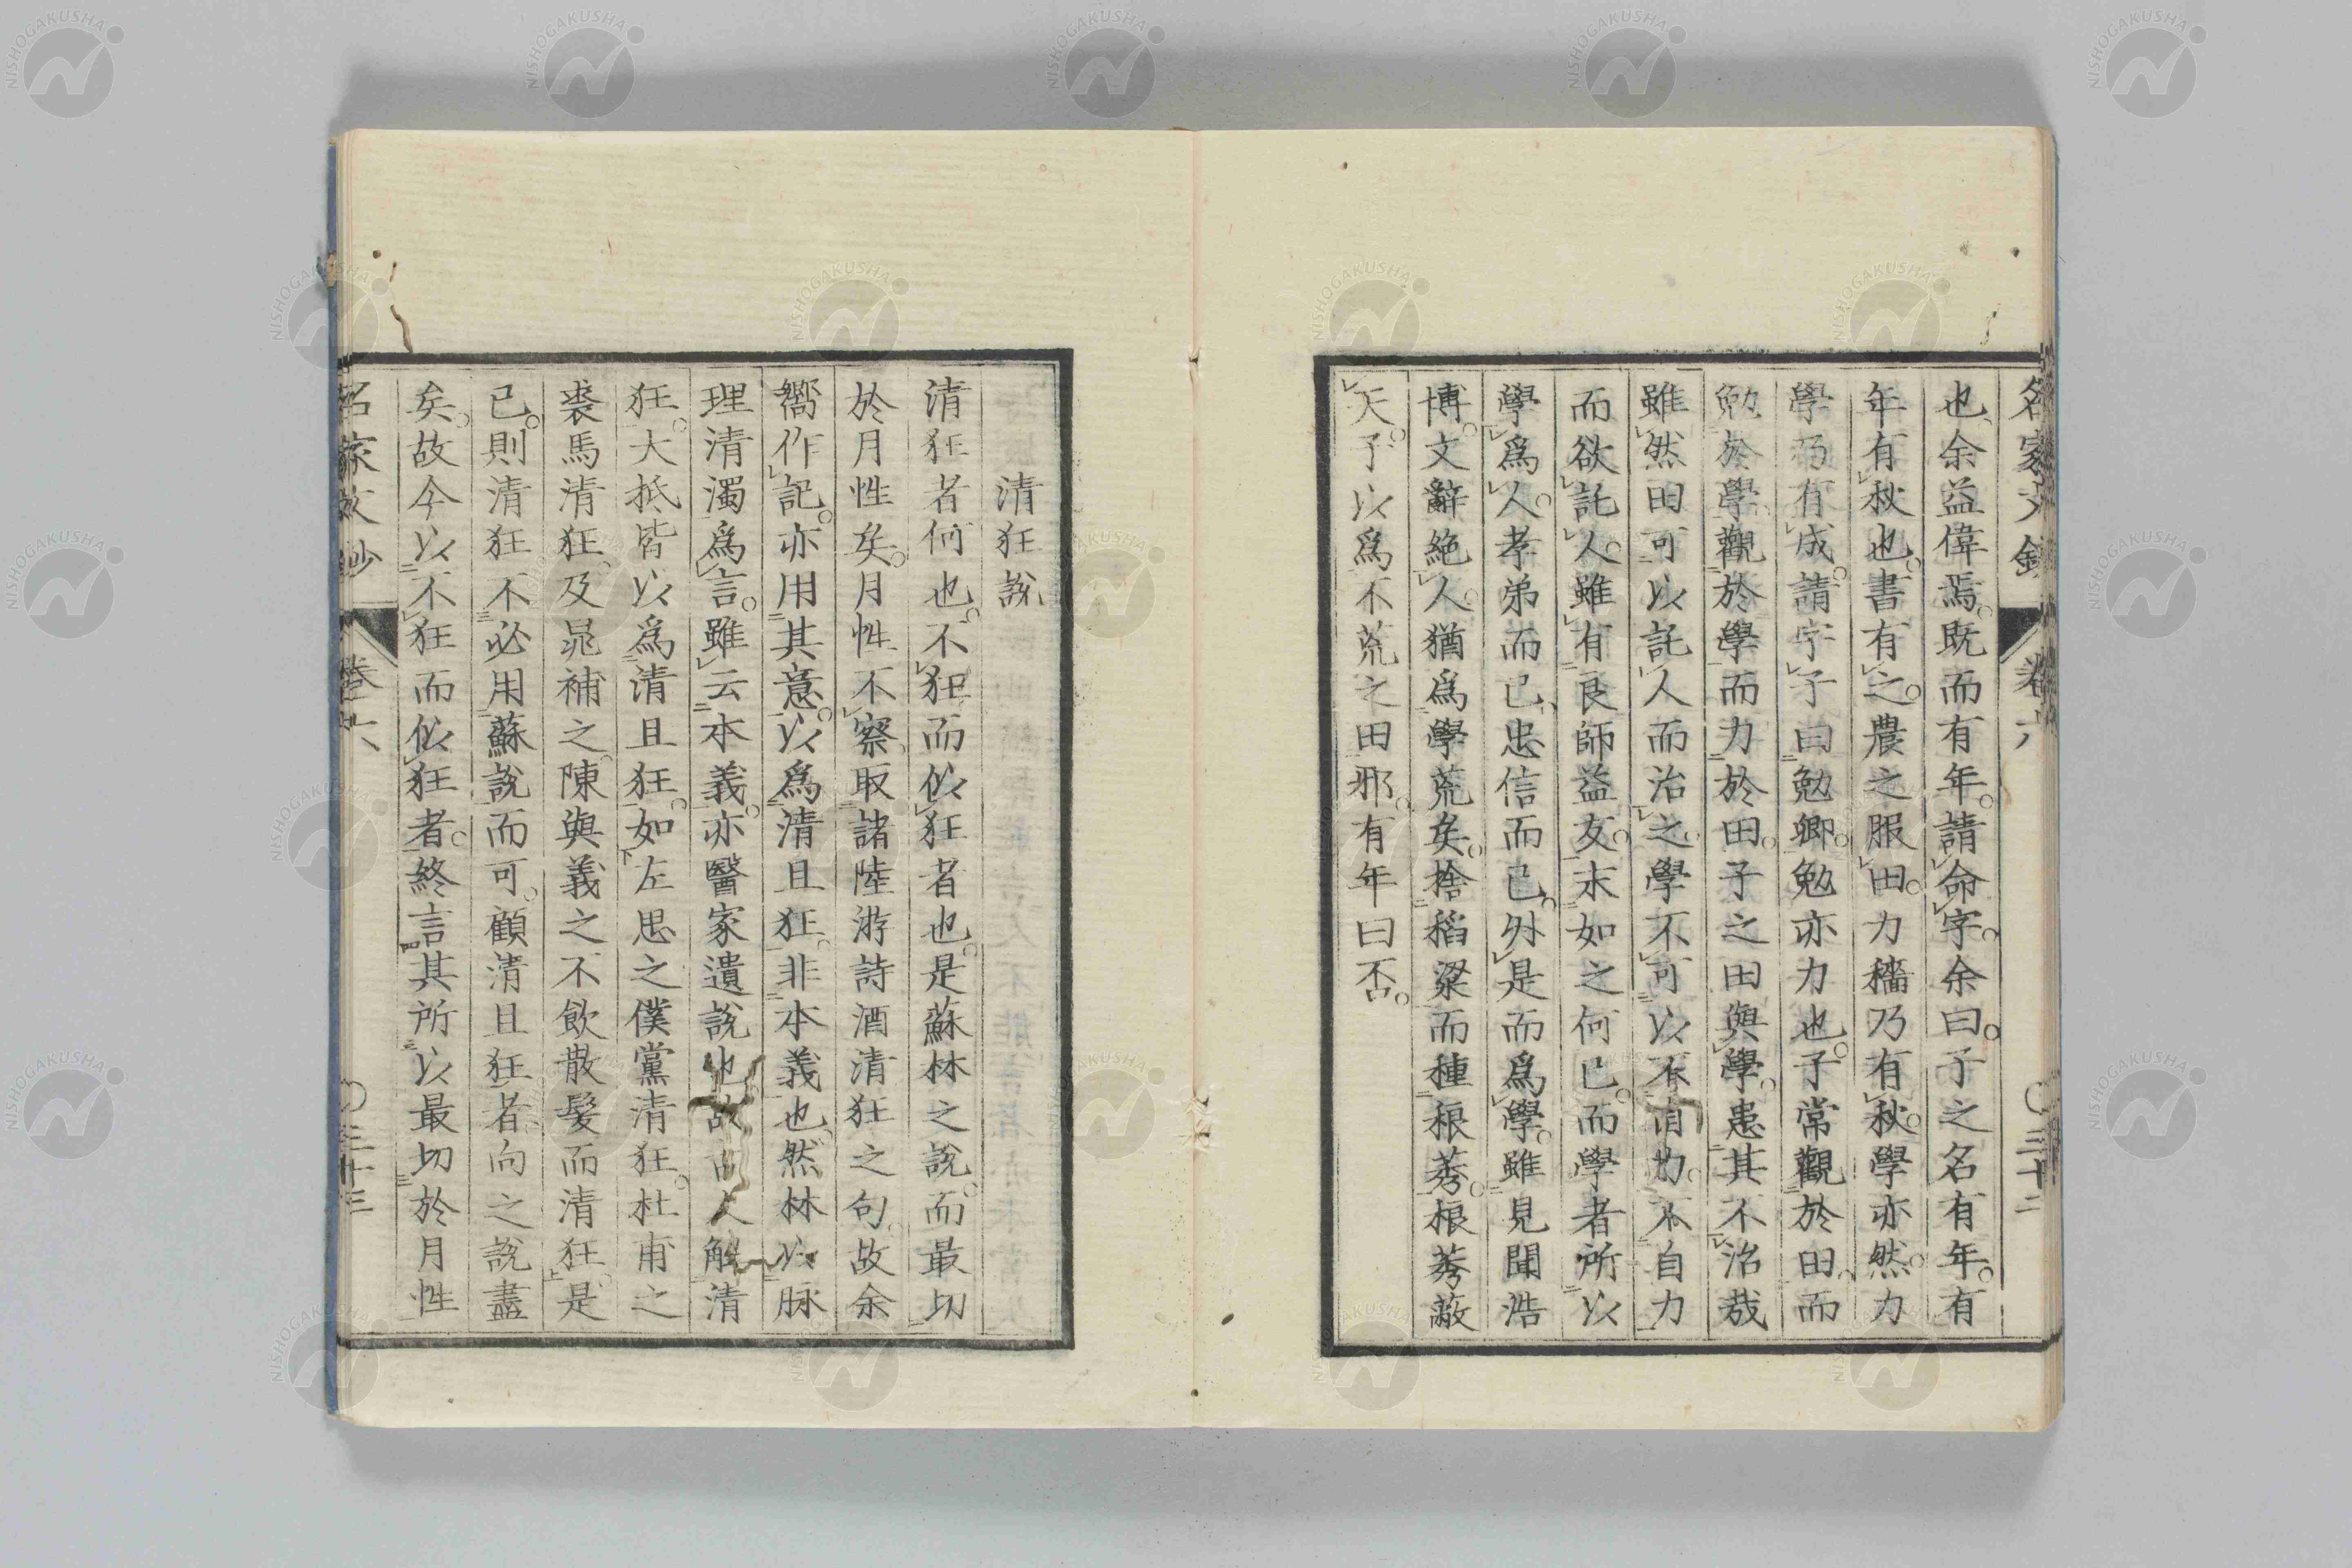 名家文鈔 卷六 〇三十二
也余益偉焉。既而有年。請命字。余曰。子之名有年。有
年有秋也。書有之。農之服田。力穡乃有秋。學亦然。力
學乃有成。請字子曰勉卿。勉亦力也。子常觀於田。而
勉於學。觀於學而力於田。子之田與學。患其不治哉
雖然田可以託人而治之。學不可以不自力。不自力
而欲託人。雖有良師益友。末如之何已。而學者所以
學爲人。孝弟而已。忠信而已。外是而爲學。雖見聞浩
博。文辭絶人。猶爲學荒矣。捨稻粱而種稂莠。稂莠蔽
天。子以爲不荒之田邪。有年曰否。
清狂說
清狂者何也。不狂而似狂者也。是蘇林之說。而最切
於月性矣。月性不察。取諸陸游詩酒清狂之句。故余
嚮作記。亦用其意。以爲清且狂。非本義也。然林以脉
理清濁爲言。雖云本義。亦醫家遺說也故古人解清
狂。大抵皆以爲清且狂。如左思之僕黨清狂。杜甫之
裘馬清狂。及晁補之陳與義之不飲散髮而清狂。是
已。則清狂不必用蘇說而可。顧清且狂者。向之說盡
矣。故今以不狂而似狂者。終言其所以最切於月性
名家文鈔 卷六 〇三十三
NISHOGAKUSHA